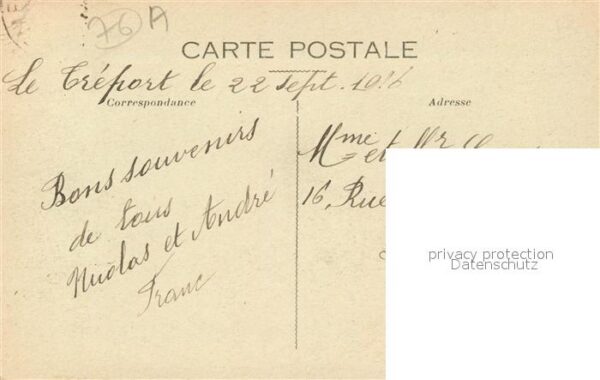 76 A
CARTE POSTALE
Le Tréport le 22 Sept.
Correspondance
Adresse
Bons souvenirs
de tous
Nicolas et André
Franc
Mme et Mr
16, Rue
privacy protection
Datenschutz